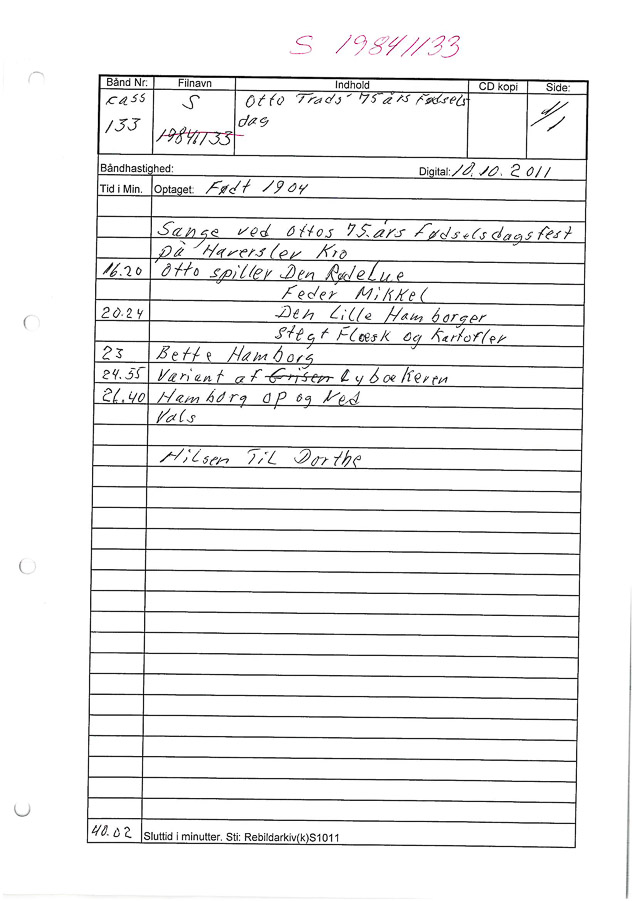 S 19841133
Bånd Nr: Filnavn Indhold CD kopi Side:
Kass S Otto Trads' 75 års Fødsels 1/1
133 19841133 dag
Båndhastighed: Digital: 10.10.2011
Tid i Min. Optaget: Født 1904
Sange ved Ottos 75. års Fødselsdagsfest
på Haverslev Kro
16.20 Otto spiller Den Rødelue
Feder Mikkel
20.24 Den Lille Hamborger
Stegt Flæsk og Kartofler
23 Bette Hamborg
24.55 Variant af Grisen Lybækeren
26.40 Hamborg op og Ned
Vals
Hilsen Til Dorthe
40.02 Sluttid i minutter. Sti: Rebildarkiv(k)S1011